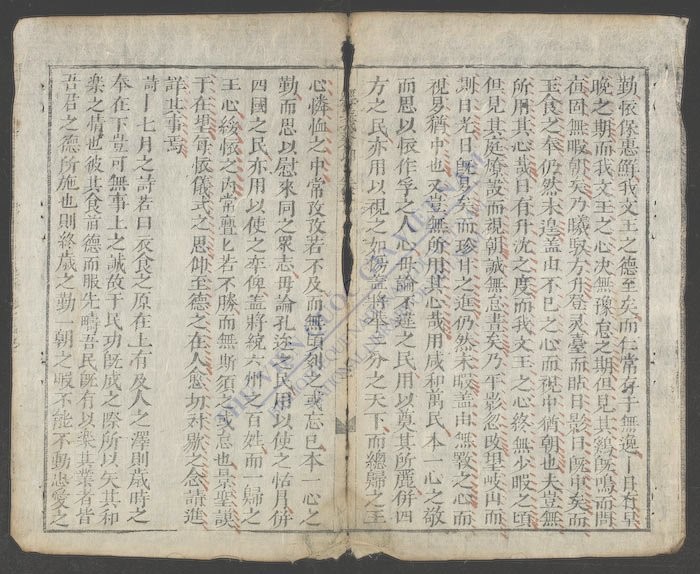 勤懷保惠鮮我文王之德至矣而仁常存于無逸丨日有早
晚之期而我文王之心决無豫怠之期但見其鷄旣鳴而問
在固無暇朝矣乃曦馭方升登灵臺而占日影日旣中矣而
玉食之奉仍然未遑盖由不已之心而視中猶朝也夫豈無
所用其心哉日有升沈之度而我文王之心終無少暇之頃
但見其庭燎設而視朝誠無怠晝矣乃平影忽改望岐山而
測日茫日旣昃矣而珍甘之進仍然未暇盖由無斁之心而
視昃猶中也又豈無所用其心哉用咸和萬民本一心之敬
而思以懷作孚之人心毋論不違之民用以奠其所麗併四
方之民亦用以視之如傷盖將舉三分之天下而總歸之王
心憐恤之中常孜孜若不及而無頃刻之或忘已本一心之
勤而思以慰來同之衆志毋論孔迩之民用以使之怙冒併
四國之民亦用以使之牽俾盖將統六州之百姓而一歸之
王心綏懷之內常亹匕若不勝而無斯須之或怠也景聖謨
于在聖毋懷儀式之思仰至德之在人忽切　　之念請進
詳其事焉
詩丨七月之詩若曰衣食之原在上有及人之澤則歲時之
奉在下豈可無事上之誠故于民功旣成之際所以矢其和
樂之情也彼其食前德而服先疇吾民旣有以樂其業者皆
吾君之德所施也則終歲之勤一朝之暇不能不動忠愛之